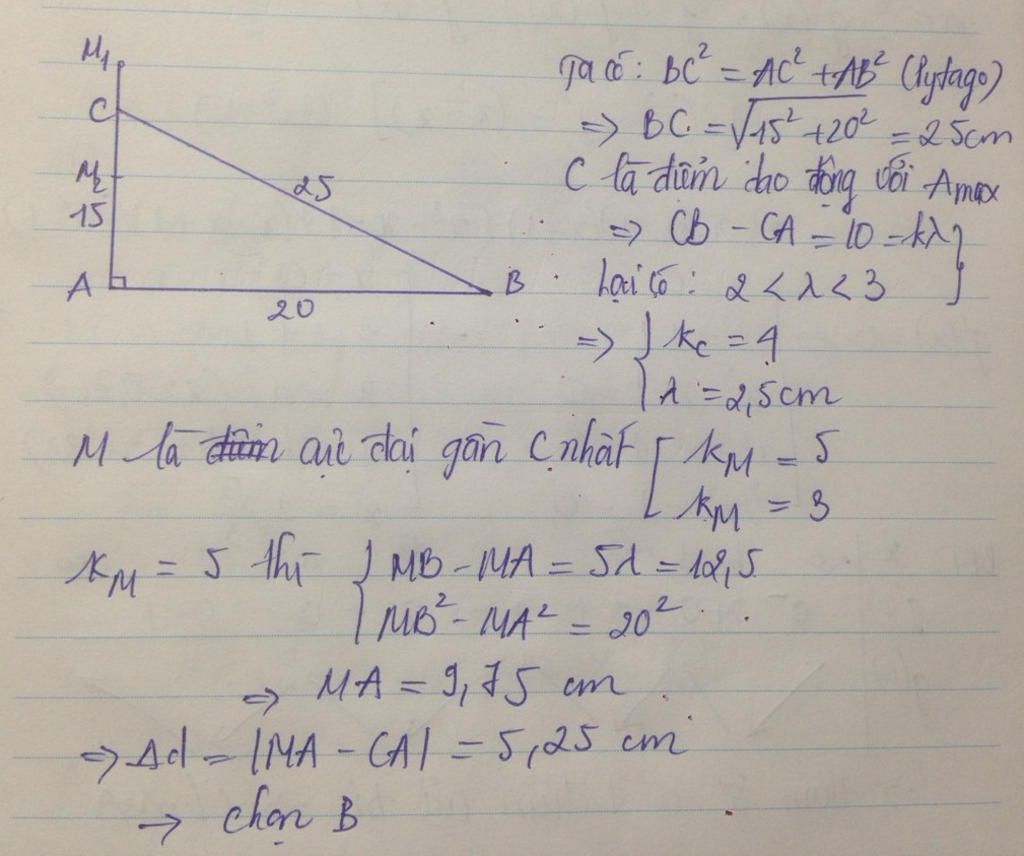 M₁
C
M₂
15
25
A
B
20
Ta có: BC² = AC² + AB² (Pytago)
=> BC = √15² + 20² = 25cm
C là điểm dao động với Amax
=> CB - CA = 10 = kλ }
Lại có: 2 < λ < 3
=> { kc = 4
λ = 2,5cm
M là cực đại gần C nhất [ kM = 5
kM = 3
kM = 5 thì { MB - MA = 5λ = 12,5
MB² - MA² = 20²
=> MA = 9,75 cm
=> Δd = |MA - CA| = 5,25 cm
→ chọn B